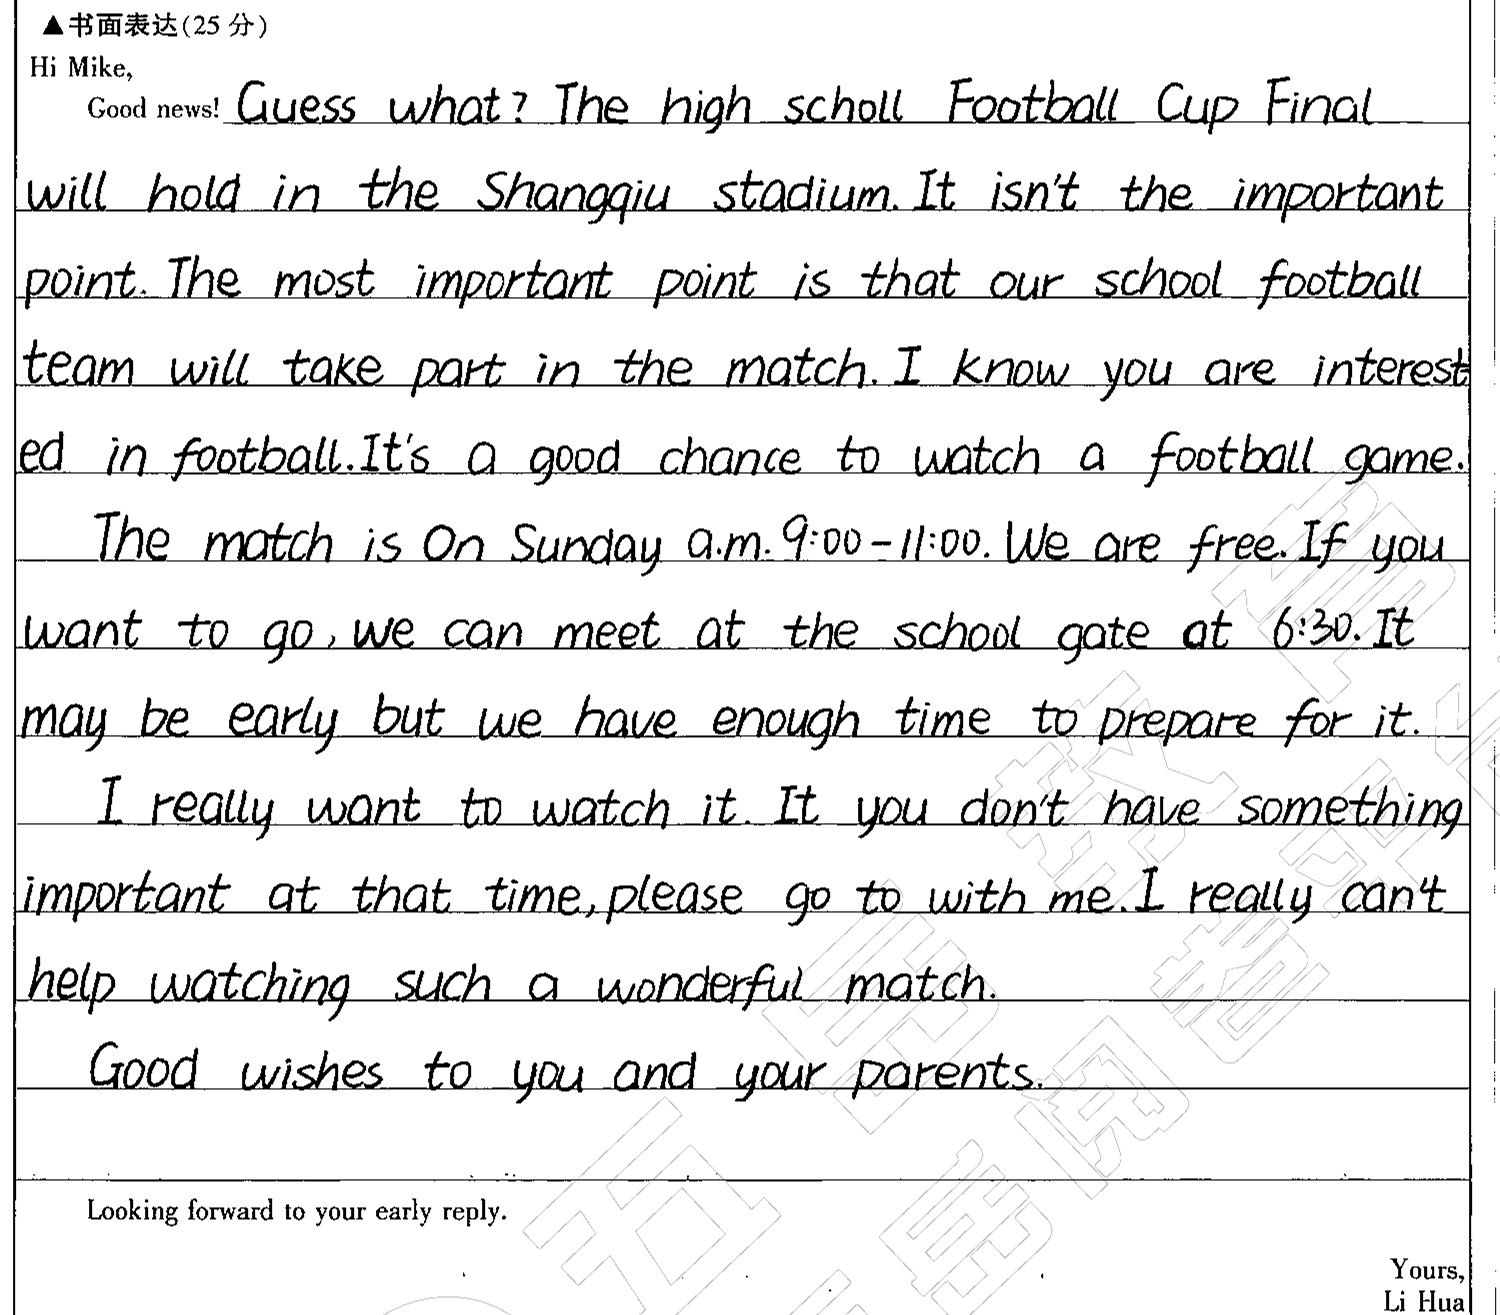 ▲书面表达(25 分)
Hi Mike,
Good news! Guess what? The high scholl Football Cup Final
will hold in the Shangqiu stadium. It isn't the important
point. The most important point is that our school football
team will take part in the match. I know you are interest
ed in football. It's a good chance to watch a football game.
The match is On Sunday a.m. 9:00-11:00. We are free. If you
want to go, we can meet at the school gate at 6:30. It
may be early but we have enough time to prepare for it.
I really want to watch it. It you don't have something
important at that time, please go to with me. I really can't
help watching such a wonderful match.
Good wishes to you and your parents.
Looking forward to your early reply.
Yours,
Li Hua